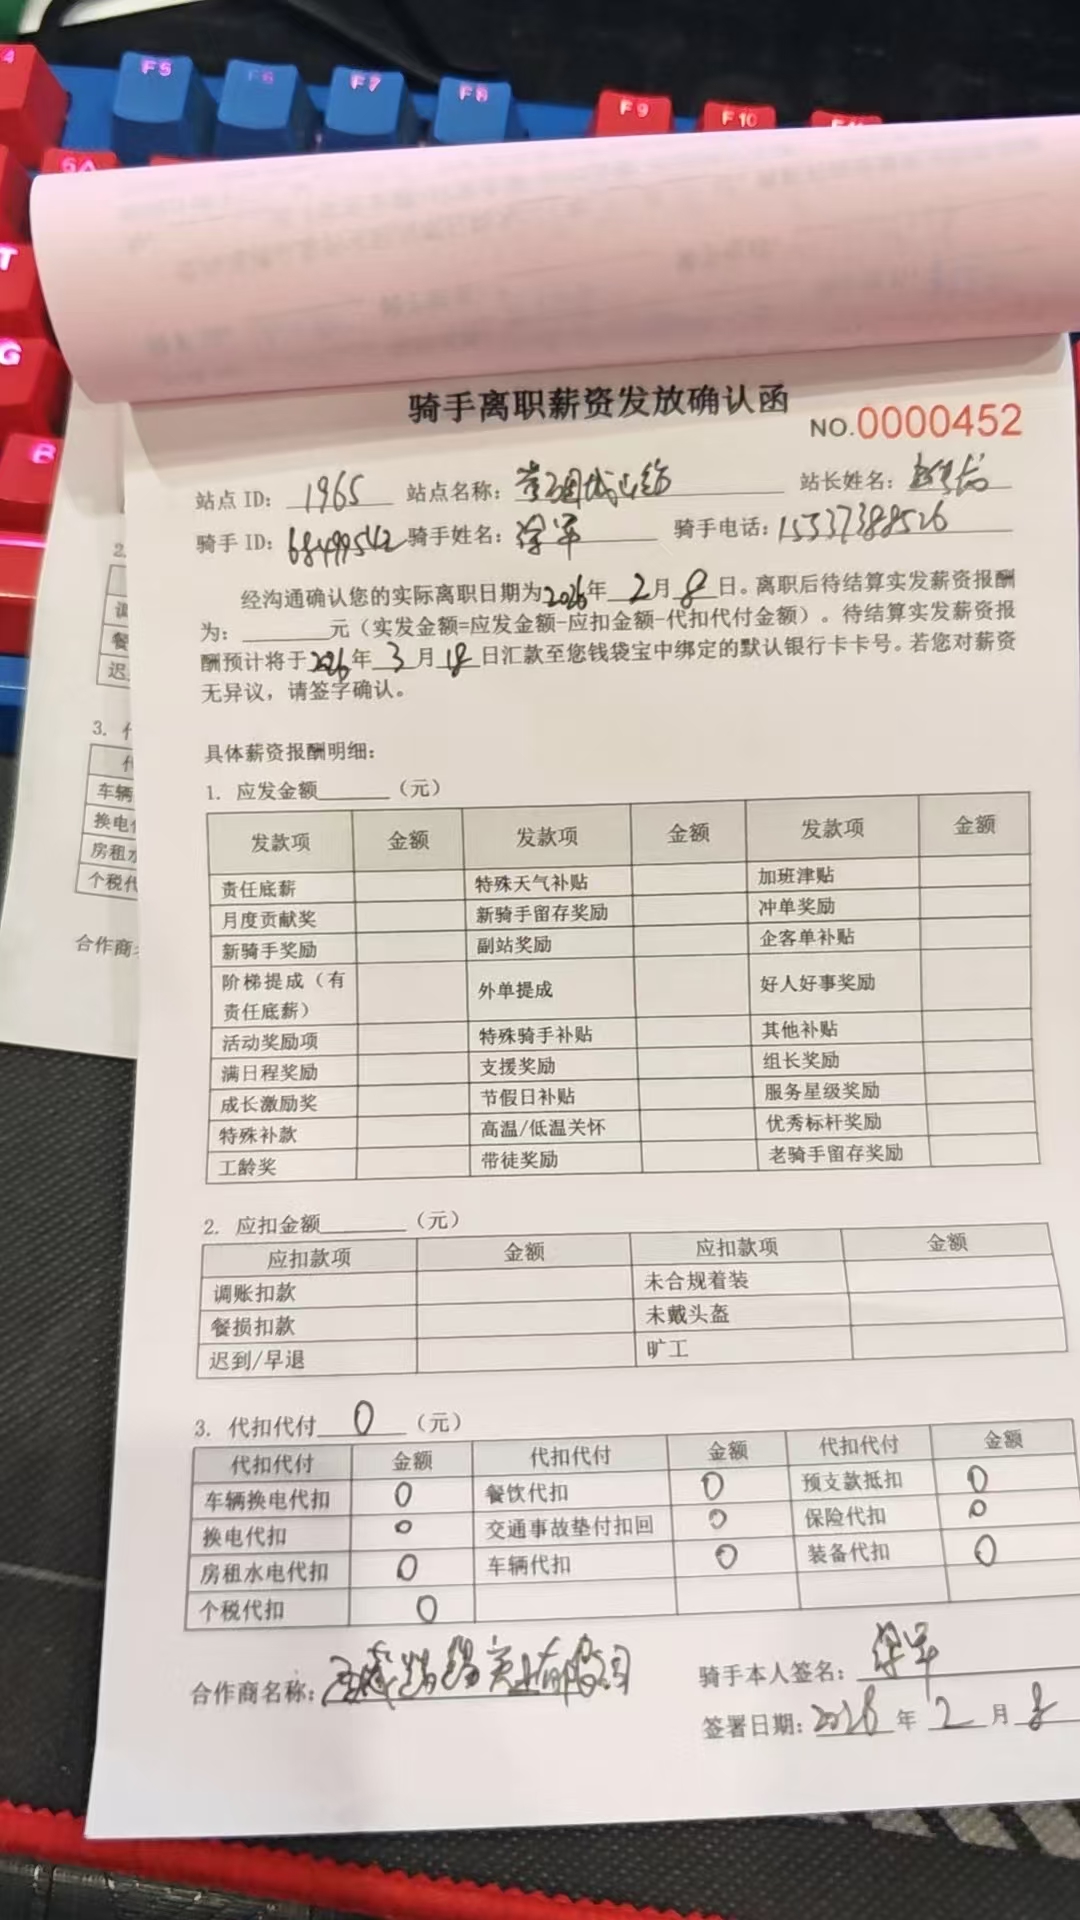 F5 F6 F7 F8 F9 F10
骑手离职薪资发放确认函
NO.0000452
站点 ID: 1965 站点名称: 站长姓名:
骑手 ID: 68499542 骑手姓名: 徐军 骑手电话: 15337388526
经沟通确认您的实际离职日期为2026年 2 月 8 日。离职后待结算实发薪资报酬
为: 元（实发金额=应发金额-应扣金额-代扣代付金额）。待结算实发薪资报
酬预计将于2026年 3 月 18 日汇款至您钱袋宝中绑定的默认银行卡卡号。若您对薪资
无异议，请签字确认。
具体薪资报酬明细:
1. 应发金额 （元）
发款项 金额 发款项 金额 发款项 金额
责任底薪 特殊天气补贴 加班津贴
月度贡献奖 新骑手留存奖励 冲单奖励
新骑手奖励 副站奖励 企客单补贴
阶梯提成（有
责任底薪） 外单提成 好人好事奖励
活动奖励项 特殊骑手补贴 其他补贴
满日程奖励 支援奖励 组长奖励
成长激励奖 节假日补贴 服务星级奖励
特殊补款 高温/低温关怀 优秀标杆奖励
工龄奖 带徒奖励 老骑手留存奖励
2. 应扣金额 （元）
应扣款项 金额 应扣款项 金额
调账扣款 未合规着装
餐损扣款 未戴头盔
迟到/早退 旷工
3. 代扣代付 0 （元）
代扣代付 金额 代扣代付 金额 代扣代付 金额
车辆换电代扣 0 餐饮代扣 0 预支款抵扣 0
换电代扣 0 交通事故垫付扣回 0 保险代扣 0
房租水电代扣 0 车辆代扣 0 装备代扣 0
个税代扣 0
合作商名称: 骑手本人签名: 徐军
签署日期: 2026 年 2 月 8